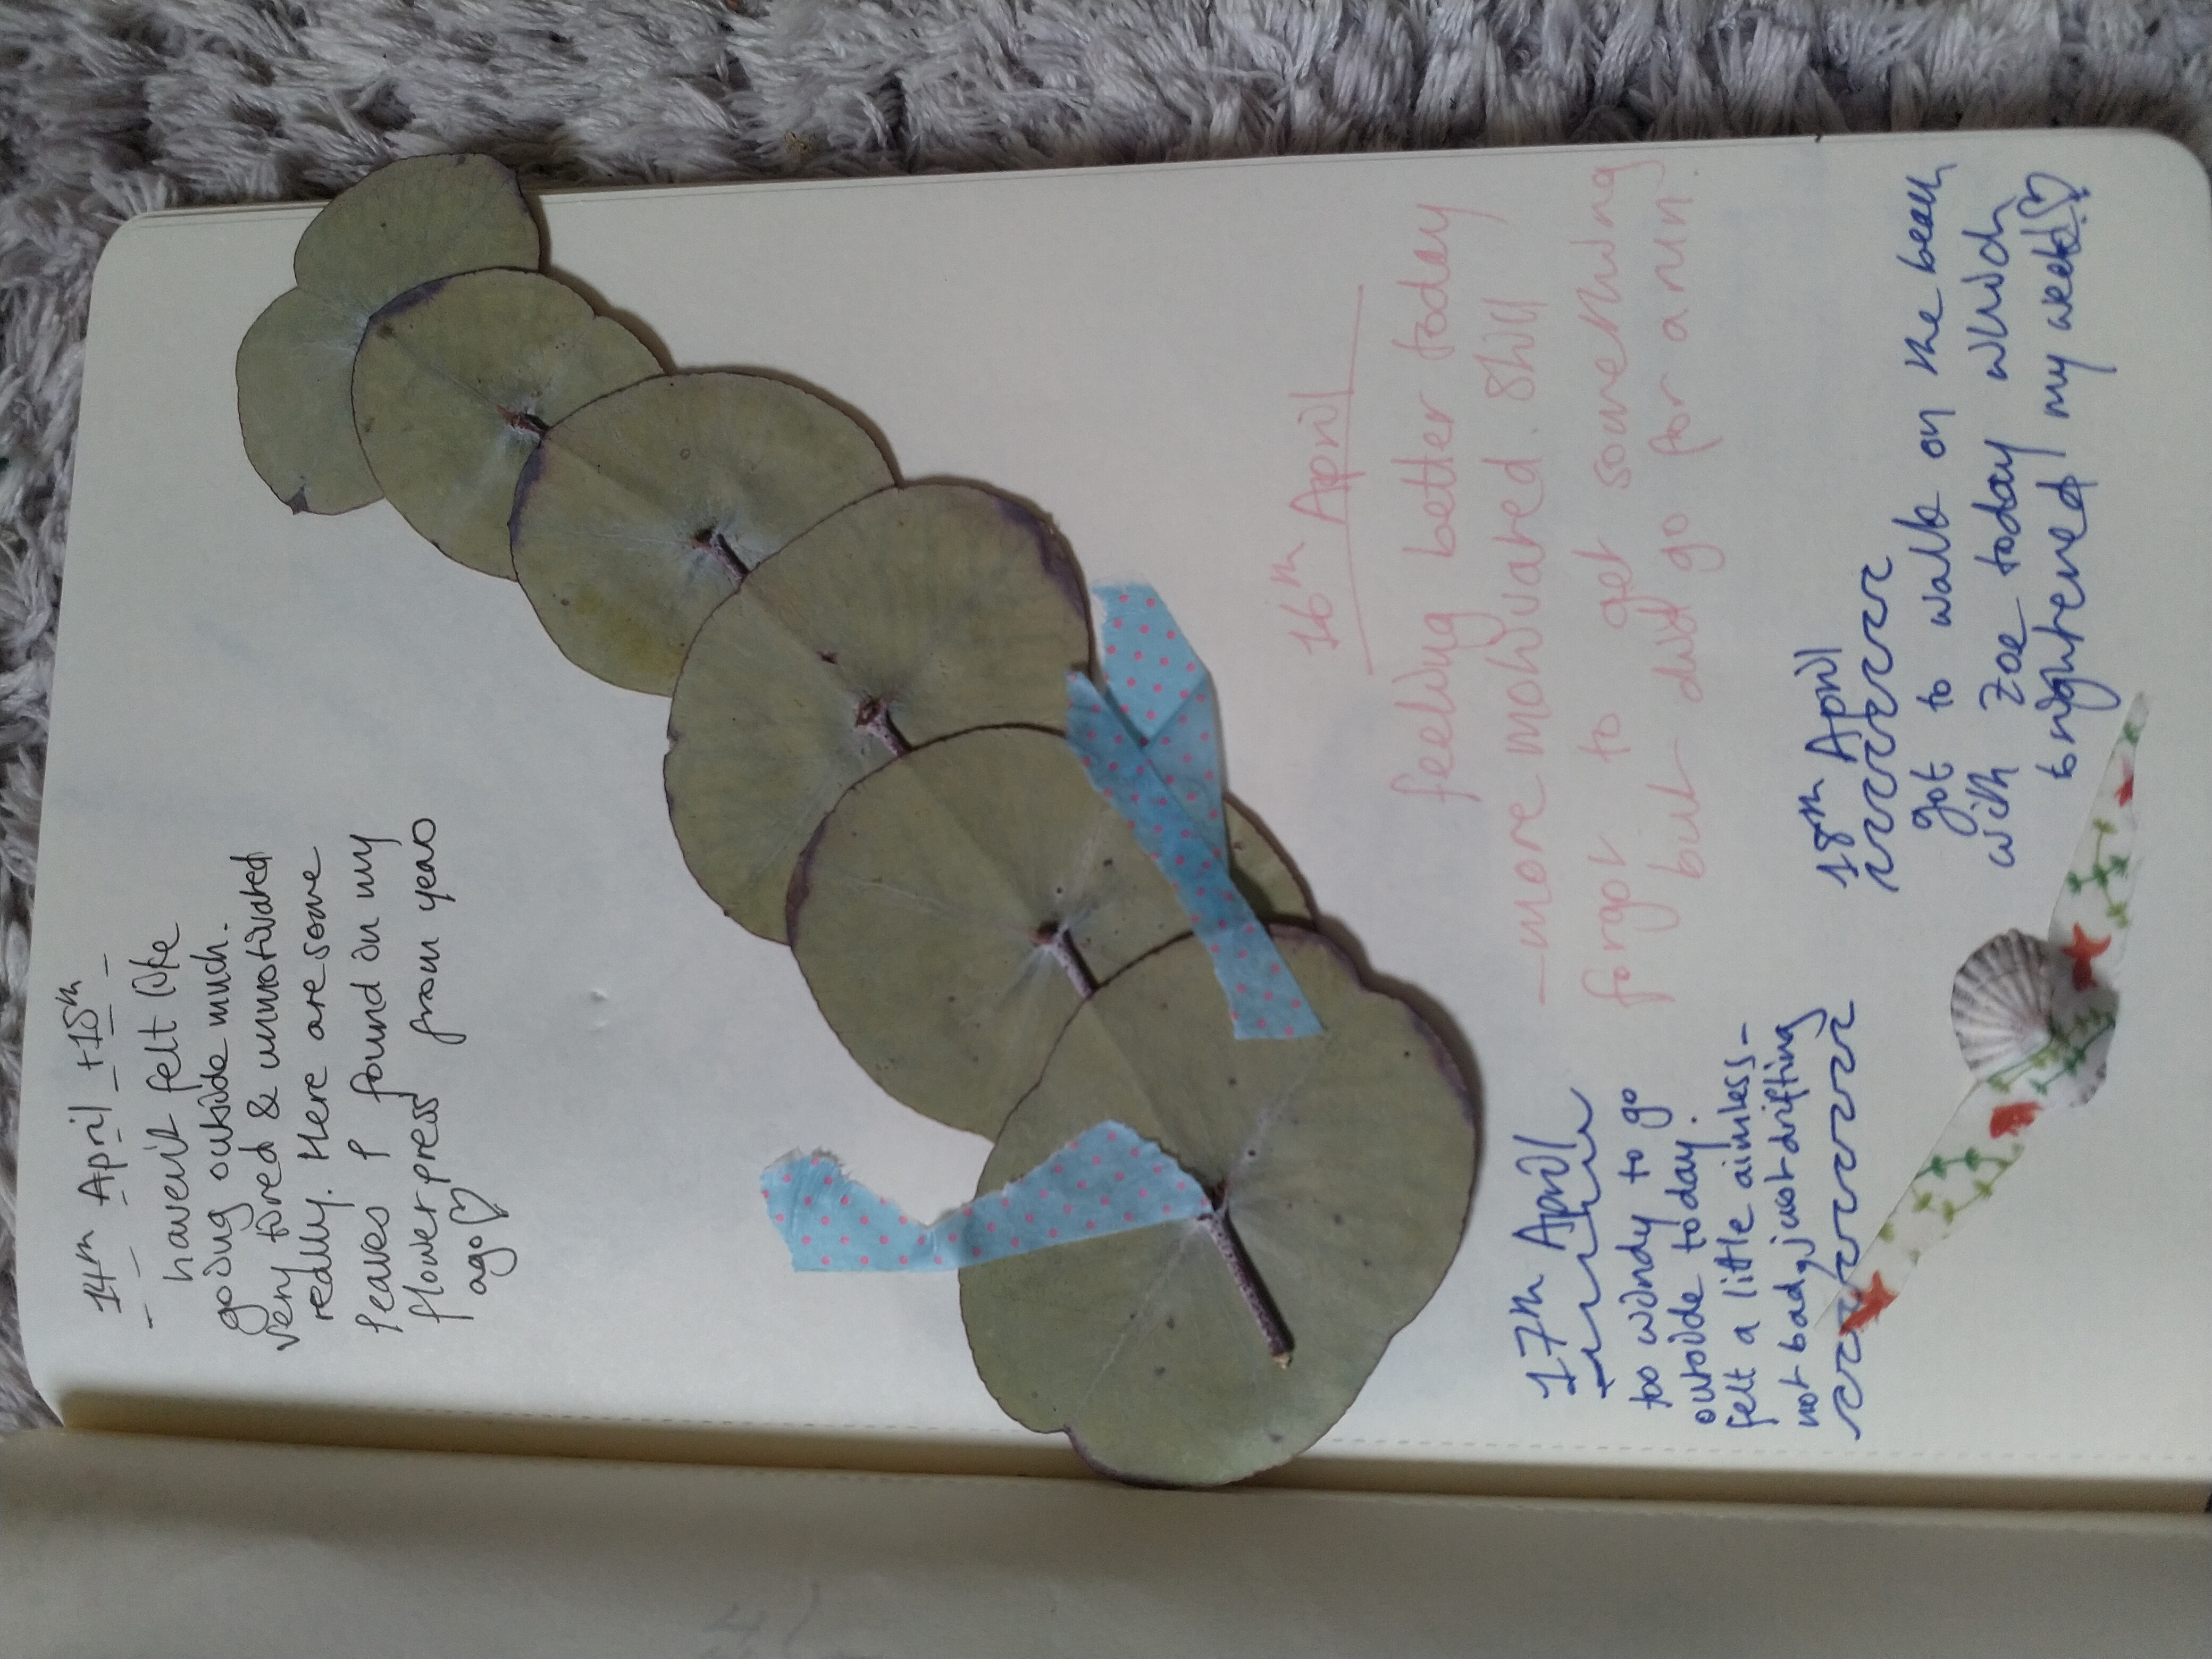 14th April + 15th
haven't felt like
going outside much.
very tired & unmotivated
really. Here are some
leaves I found in my
flowerpress from years
ago♡
16th April
feeling better today
—more motivated. Still
forgot to get something
but did go for a run.
17th April
too windy to go
outside today.
felt a little aimless-
not bad, just drifting
18th April
got to walk on the beach
with Zoe today which
brightened my week♡!